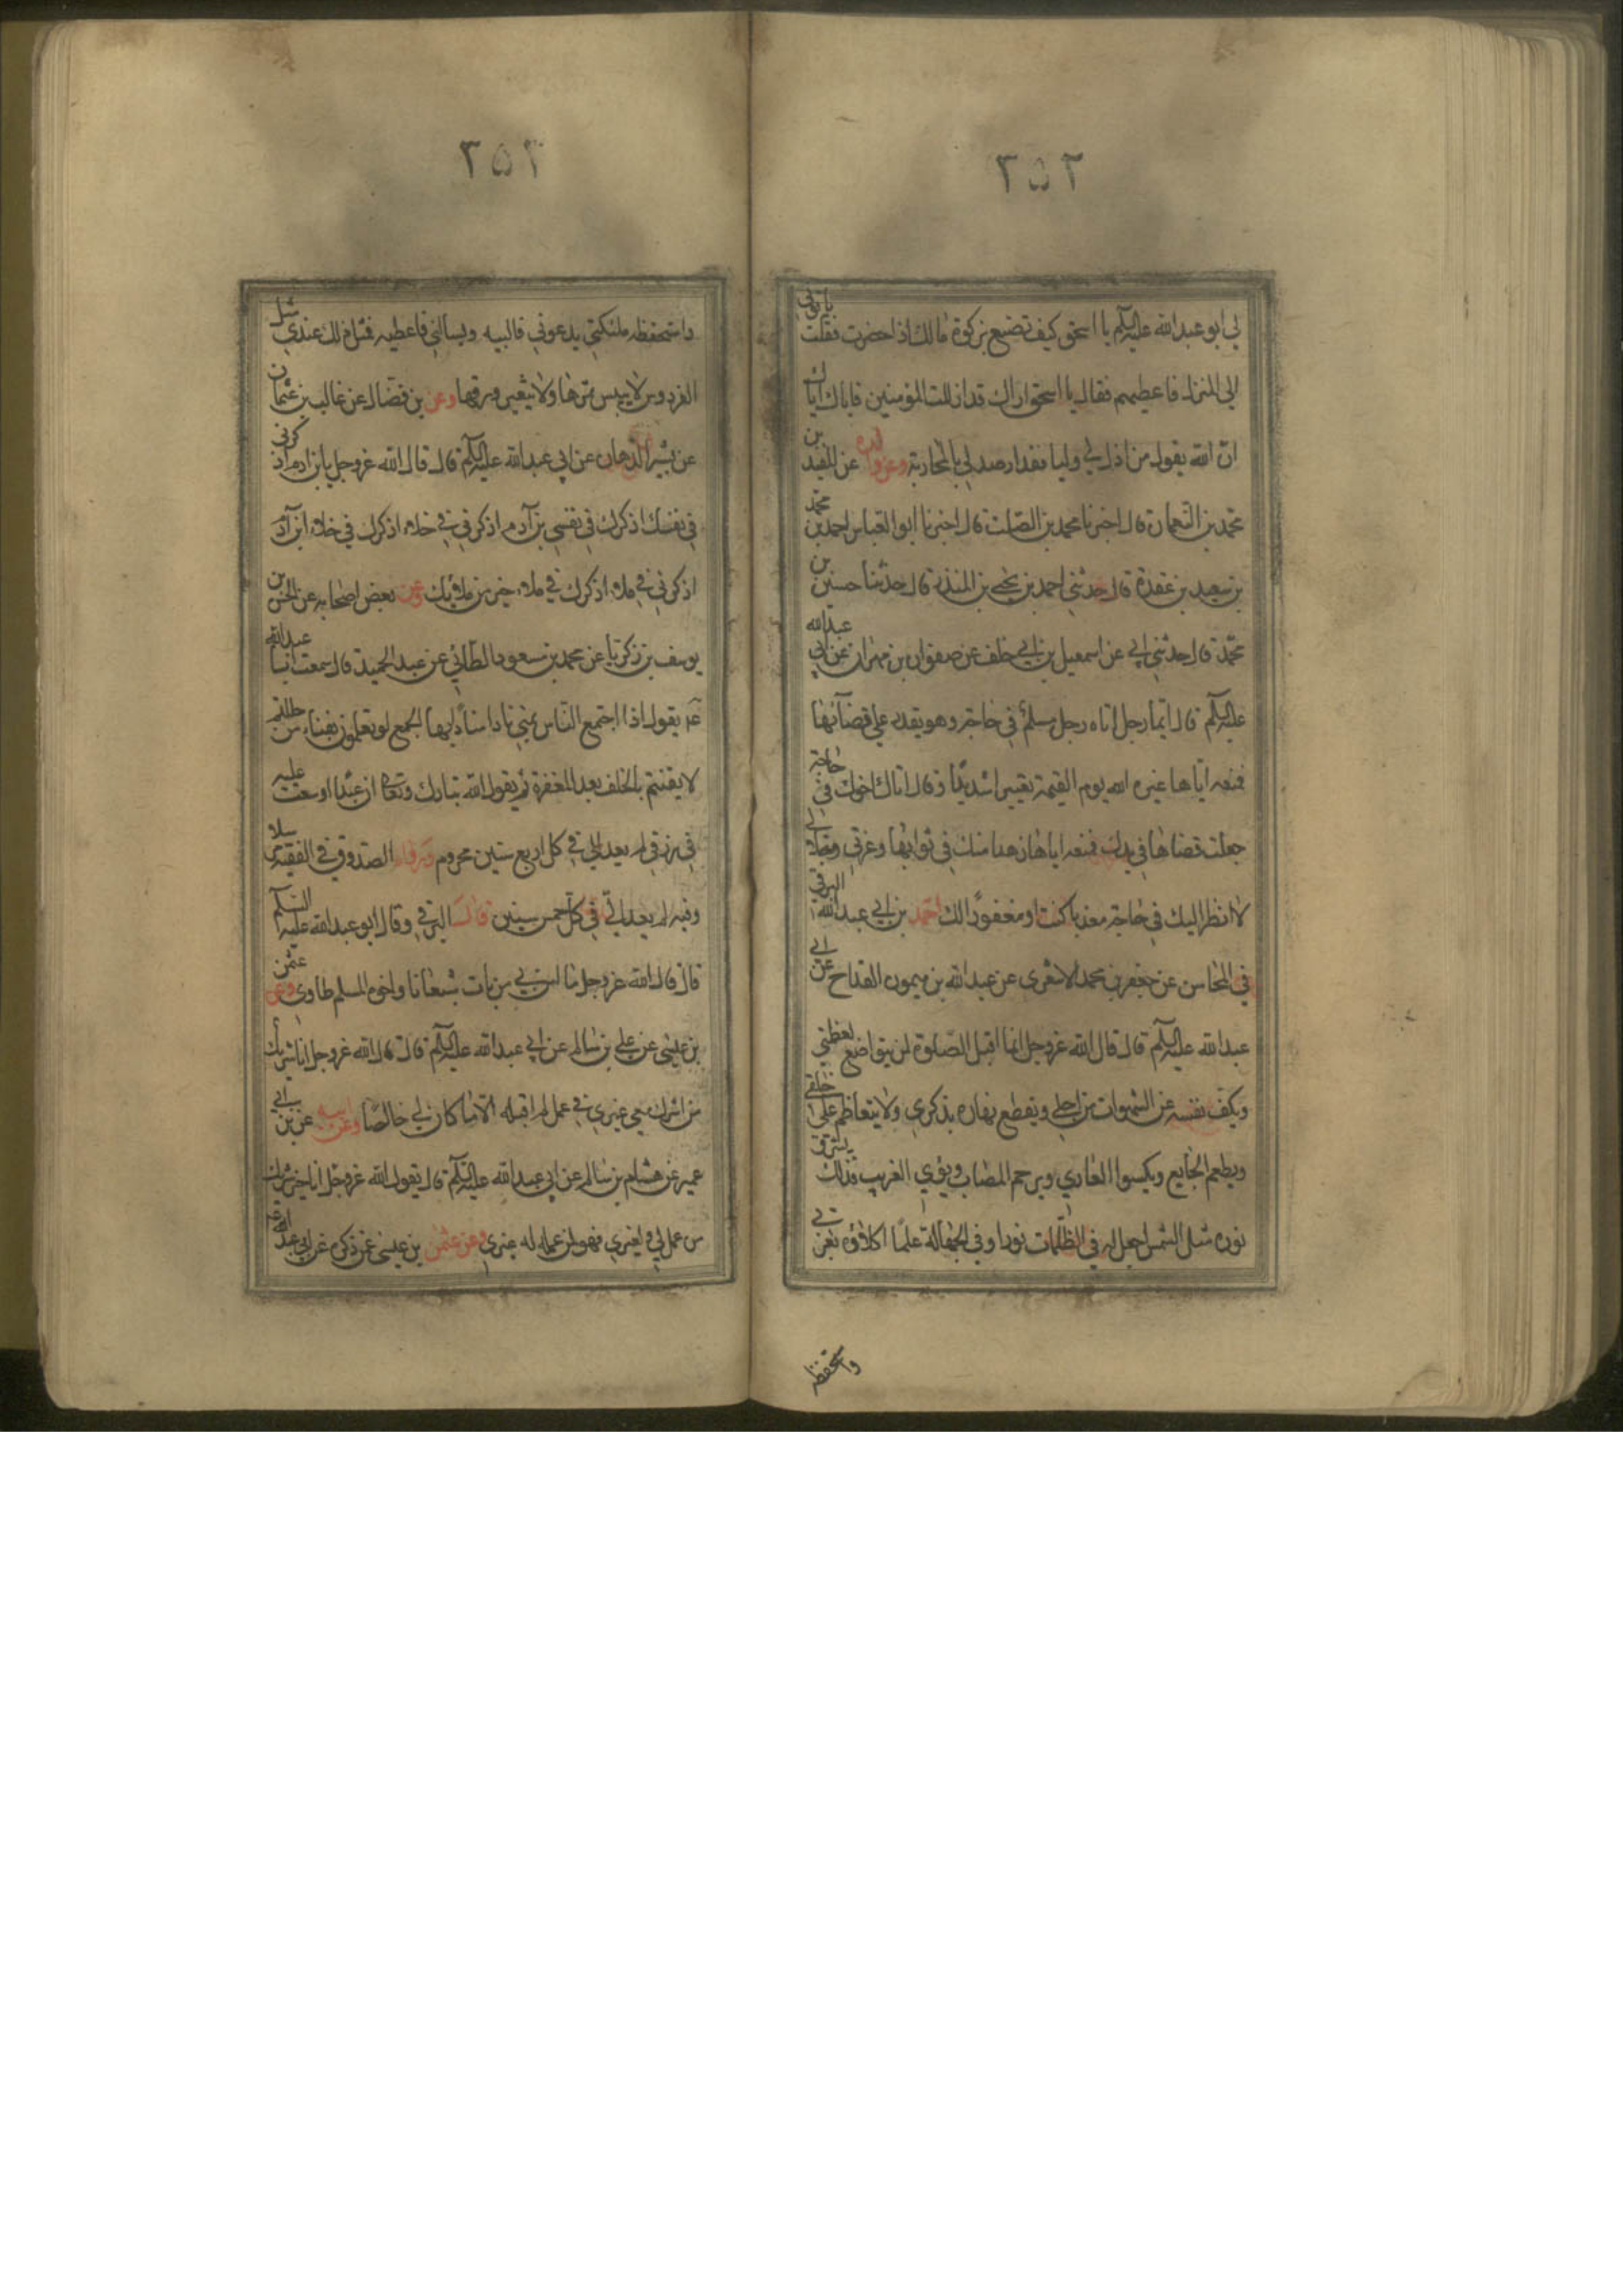 ٢٥٢
لي ابو عبدالله عليه السلام يا اسحق كيف تصنع بزكوة مالك اذا حضرت فقلت ياتوني
الى المنزل فاعطيهم فقال يا اسحق اراك قد اذللت المؤمنين فاياك اياك
ان الله يقول من اذل لي وليا فقد ارصد لي بالمحاربة وعن والده عن المفيد بن
محمد بن النعمان قال اخبرنا محمد بن الصلت قال اخبرنا ابو العباس احمد بن محمد
بن سعيد بن عقدة قال حدثني احمد بن يحيى بن المنذر قال حدثنا حسين بن
محمد قال حدثني ابي عن اسمعيل بن ابي خلف عن صفوان بن مهران عن ابي عبدالله
عليه السلام قال ايما رجل اتاه رجل مسلم في حاجة وهو يقدر على قضائها
فمنعه اياها عيره الله يوم القيمة تعييرا شديدا وقال اتاك اخوك في حاجة
جعلت قضاها في يدك فمنعه اياها زهدا منك في ثوابها وعزتي وجلالي
لا انظر اليك في حاجة معذبا كنت او مغفورا لك احمد بن ابي عبدالله البرقي
في المحاسن عن جعفر بن محمد الاشعري عن عبدالله بن ميمون القداح عن ابي
عبدالله عليه السلام قال قال الله عز وجل انما اقبل الصلوة لمن يتواضع لعظمتي
ويكف نفسه عن الشهوات من اجلي ويقطع نهاره بذكري ولا يتعاظم على خلقي
ويطعم الجايع ويكسوا العاري ويرحم المصاب ويؤوي الغريب فذلك يشرق
نوره مثل الشمس اجعل له في الظلمات نورا وفي الجهالة علما اكلاؤه بعزتي
واستحفظه
٢٥٣
واستحفظه ملئكتي يدعوني فالبيه ويسالني فاعطيه فمثل ذلك عندي مثل
الفردوس لا ييبس ثمرها ولا يتغير ورقها وعن بن فضال عن غالب بن عثمان
عن بشير الدهان عن ابي عبدالله عليه السلام قال قال الله عز وجل يا بن ادم اذكرني
في نفسك اذكرك في نفسي بن آدم اذكرني في خلاء اذكرك في خلاء ابن آدم
اذكرني في ملاء اذكرك في ملاء خير من ملائك وعن بعض اصحابه عن الحسن بن
يوسف بن زكريا عن محمد بن مسعود الطائي عن عبد الحميد قال سمعت ابا عبدالله
ع يقول اذا اجتمع الناس بمنى نادا مناد ايها الجمع لو تعلمون بفناء من حللتم
لايقنتم بالخلف بعد المغفرة ثم يقول الله تبارك وتعالى ان عبدا اوسعت عليه
في رزقي لم يعد الي في كل اربع سنين محروم ورواه الصدوق في الفقيه مرسلا
وفيه لم يعد الي في كل خمس سنين قال البرقي وقال ابو عبدالله عليه السلام
قال قال الله عز وجل ما امن بي من بات شبعانا واخوه المسلم طاوي وعن عثمن
بن عيسى عن علي بن سالم عن ابي عبدالله عليه السلام قال قال الله عز وجل انا خير شريك
من اشرك معي غيري في عمل لم اقبله الا ما كان لي خالصا وعن ابيه عن بن ابي
عمير عن هشام بن سالم عن ابي عبدالله عليه السلام قال يقول الله عز وجل انا خير شريك
من عمل لي ولغيري فهو لمن عمله له غيري وعن عثمن بن عيسى عمن ذكره عن ابي عبدالله